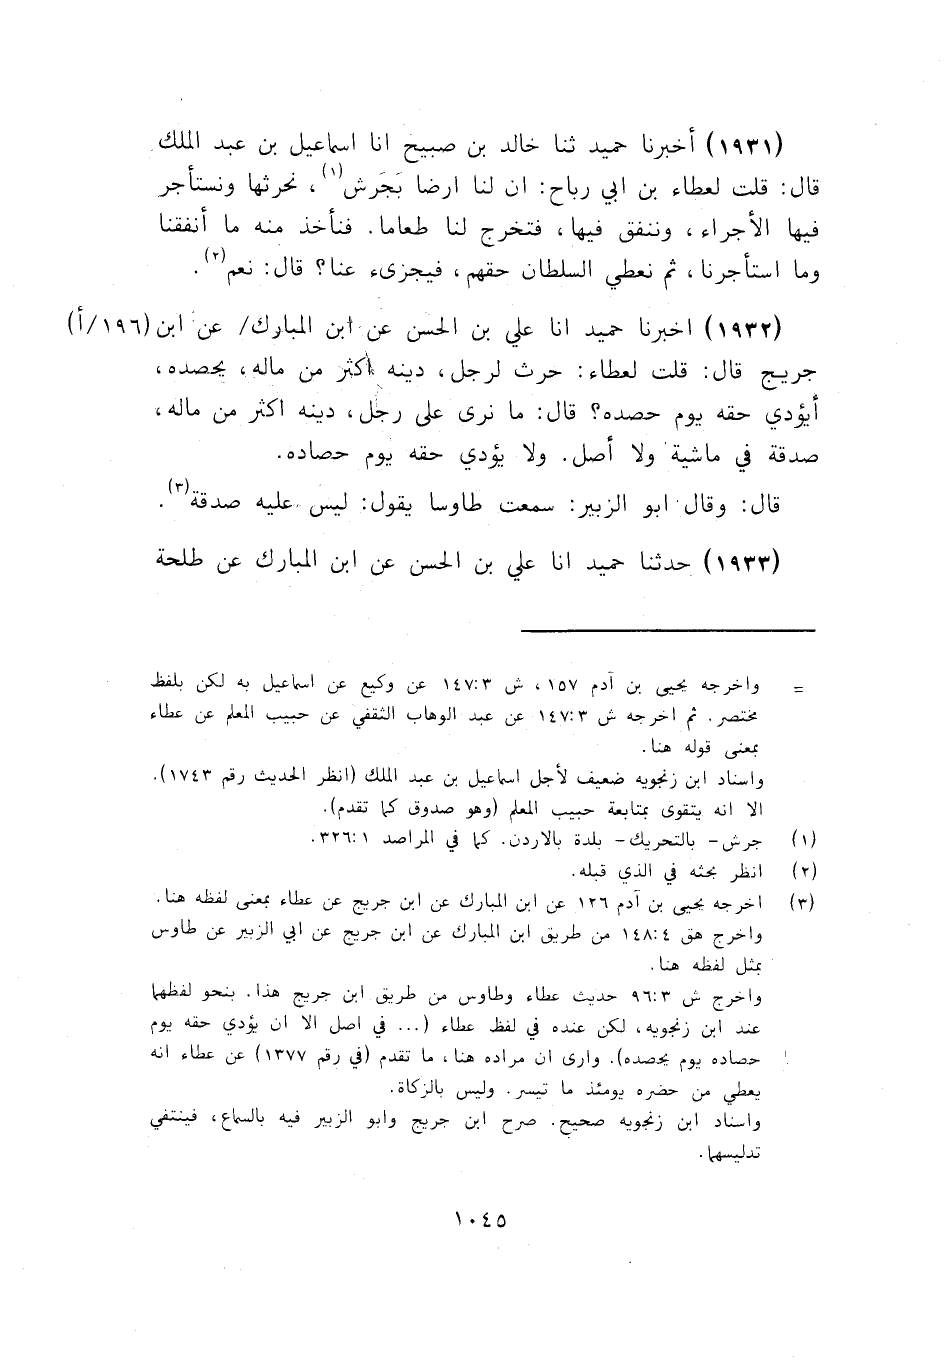 (١٩٣١) أخبرنا حميد ثنا خالد بن صبيح انا اسماعيل بن عبد الملك
قال: قلت لعطاء بن ابي رباح: ان لنا ارضا بَجَرش(١)، نحرثها ونستأجر
فيها الأجراء، وننفق فيها، فتخرج لنا طعاما. فنأخذ منه ما أنفقنا
وما استأجرنا، ثم نعطي السلطان حقهم، فيجزىء عنا؟ قال: نعم(٢).
(١٩٣٢) اخبرنا حميد انا علي بن الحسن عن ابن المبارك/ عن ابن (١٩٦/أ)
جريج قال: قلت لعطاء: حرث لرجل، دينه أكثر من ماله، يحصده،
أيؤدي حقه يوم حصده؟ قال: ما نرى على رجل، دينه اكثر من ماله،
صدقة في ماشية ولا أصل. ولا يؤدي حقه يوم حصاده.
قال: وقال ابو الزبير: سمعت طاوسا يقول: ليس عليه صدقة(٣).
(١٩٣٣) حدثنا حميد انا علي بن الحسن عن ابن المبارك عن طلحة
= واخرجه يحيى بن آدم ١٥٧، ش ١٤٧:٣ عن وكيع عن اسماعيل به لكن بلفظ
مختصر. ثم اخرجه ش ١٤٧:٣ عن عبد الوهاب الثقفي عن حبيب المعلم عن عطاء
بمعنى قوله هنا.
واسناد ابن زنجويه ضعيف لأجل اسماعيل بن عبد الملك (انظر الحديث رقم ١٧٤٣).
الا انه يتقوى بمتابعة حبيب المعلم (وهو صدوق كما تقدم).
(١) جرش- بالتحريك- بلدة بالاردن. كما في المراصد ٣٢٦:١.
(٢) انظر بحثه في الذي قبله.
(٣) اخرجه يحيى بن آدم ١٢٦ عن ابن المبارك عن ابن جريج عن عطاء بمعنى لفظه هنا.
واخرج هق ١٤٨:٤ من طريق ابن المبارك عن ابن جريج عن ابي الزبير عن طاوس
بمثل لفظه هنا.
واخرج ش ٩٦:٣ حديث عطاء وطاوس من طريق ابن جريج هذا. بنحو لفظهما
عند ابن زنجويه، لكن عنده في لفظ عطاء (... في اصل الا ان يؤدي حقه يوم
حصاده يوم يحصده). وارى ان مراده هنا، ما تقدم (في رقم ١٣٧٧) عن عطاء انه
يعطي من حضره يومئذ ما تيسر. وليس بالزكاة.
واسناد ابن زنجويه صحيح. صرح ابن جريج وابو الزبير فيه بالسماع، فينتفي
تدليسهما.
١٠٤٥